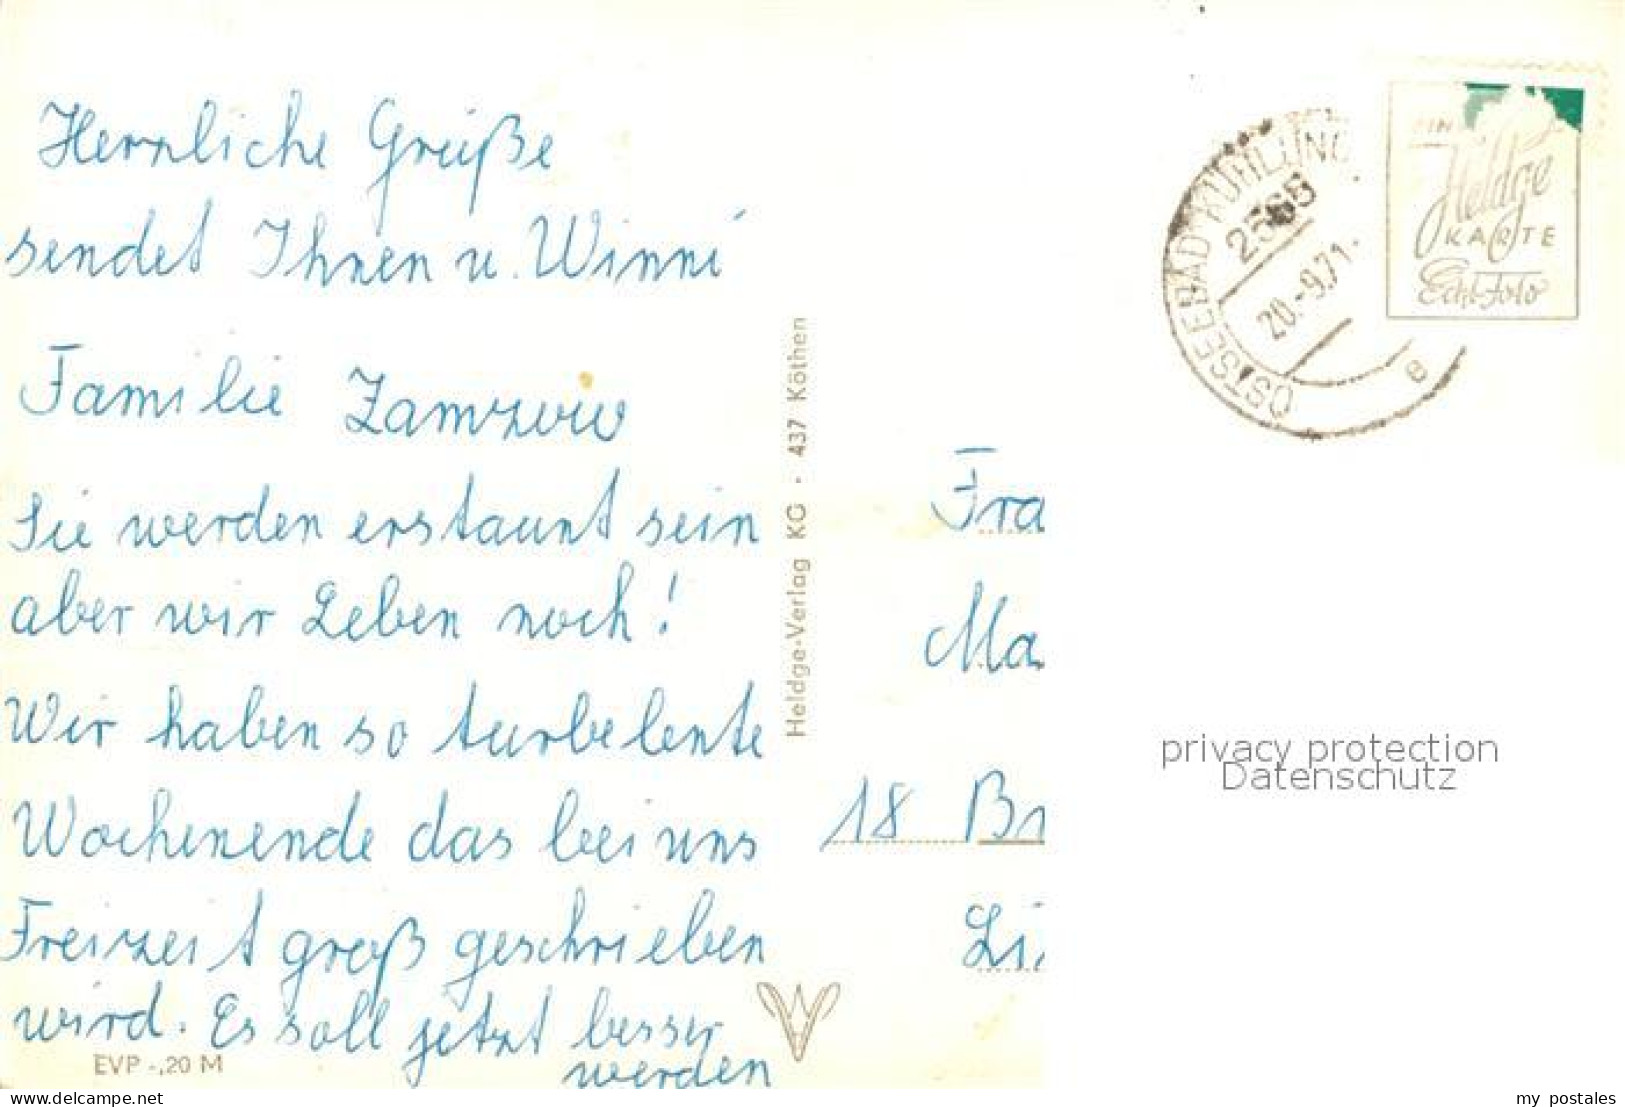 Herzliche Grüße
sendet Ihnen u. Winni
Familie Zamzow
Sie werden erstaunt sein
aber wir Leben noch!
Wir haben so turbelente
Wochenende das bei uns
Freizeit groß geschrieben
wird. Es soll jetzt besser
werden
EVP -,20 M
Heldge-Verlag KG · 437 Köthen
OSTSEEBAD KÜHLUNG
2565
20.-9.71
e
Heldge
KARTE
Echt-Foto
Fra
Ma
18 Br
Li
privacy protection
Datenschutz
www.delcampe.net
my_postales